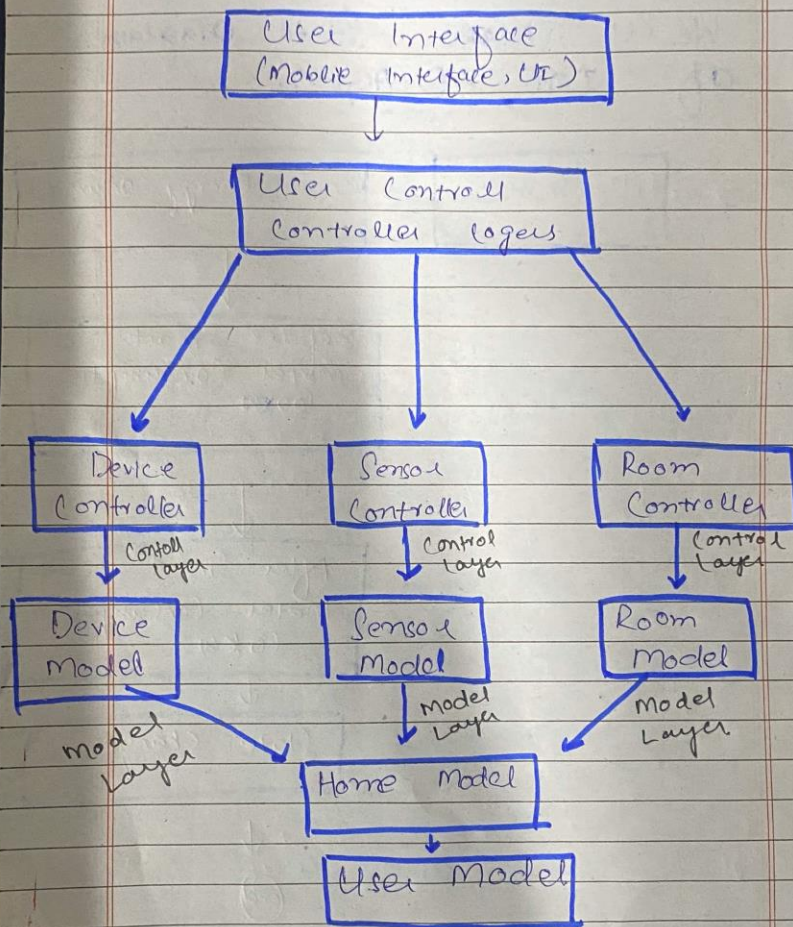 User Interface
(Moblie Interface, UI)
User Controll
Controller logers
Device
Controller
Sensor
Controller
Room
Controller
Contoll
Layer
Control
Layer
Control
Layer
Device
Model
Sensor
Model
Room
Model
Model
Layer
Model
Layer
Model
Layer
Home Model
User Model